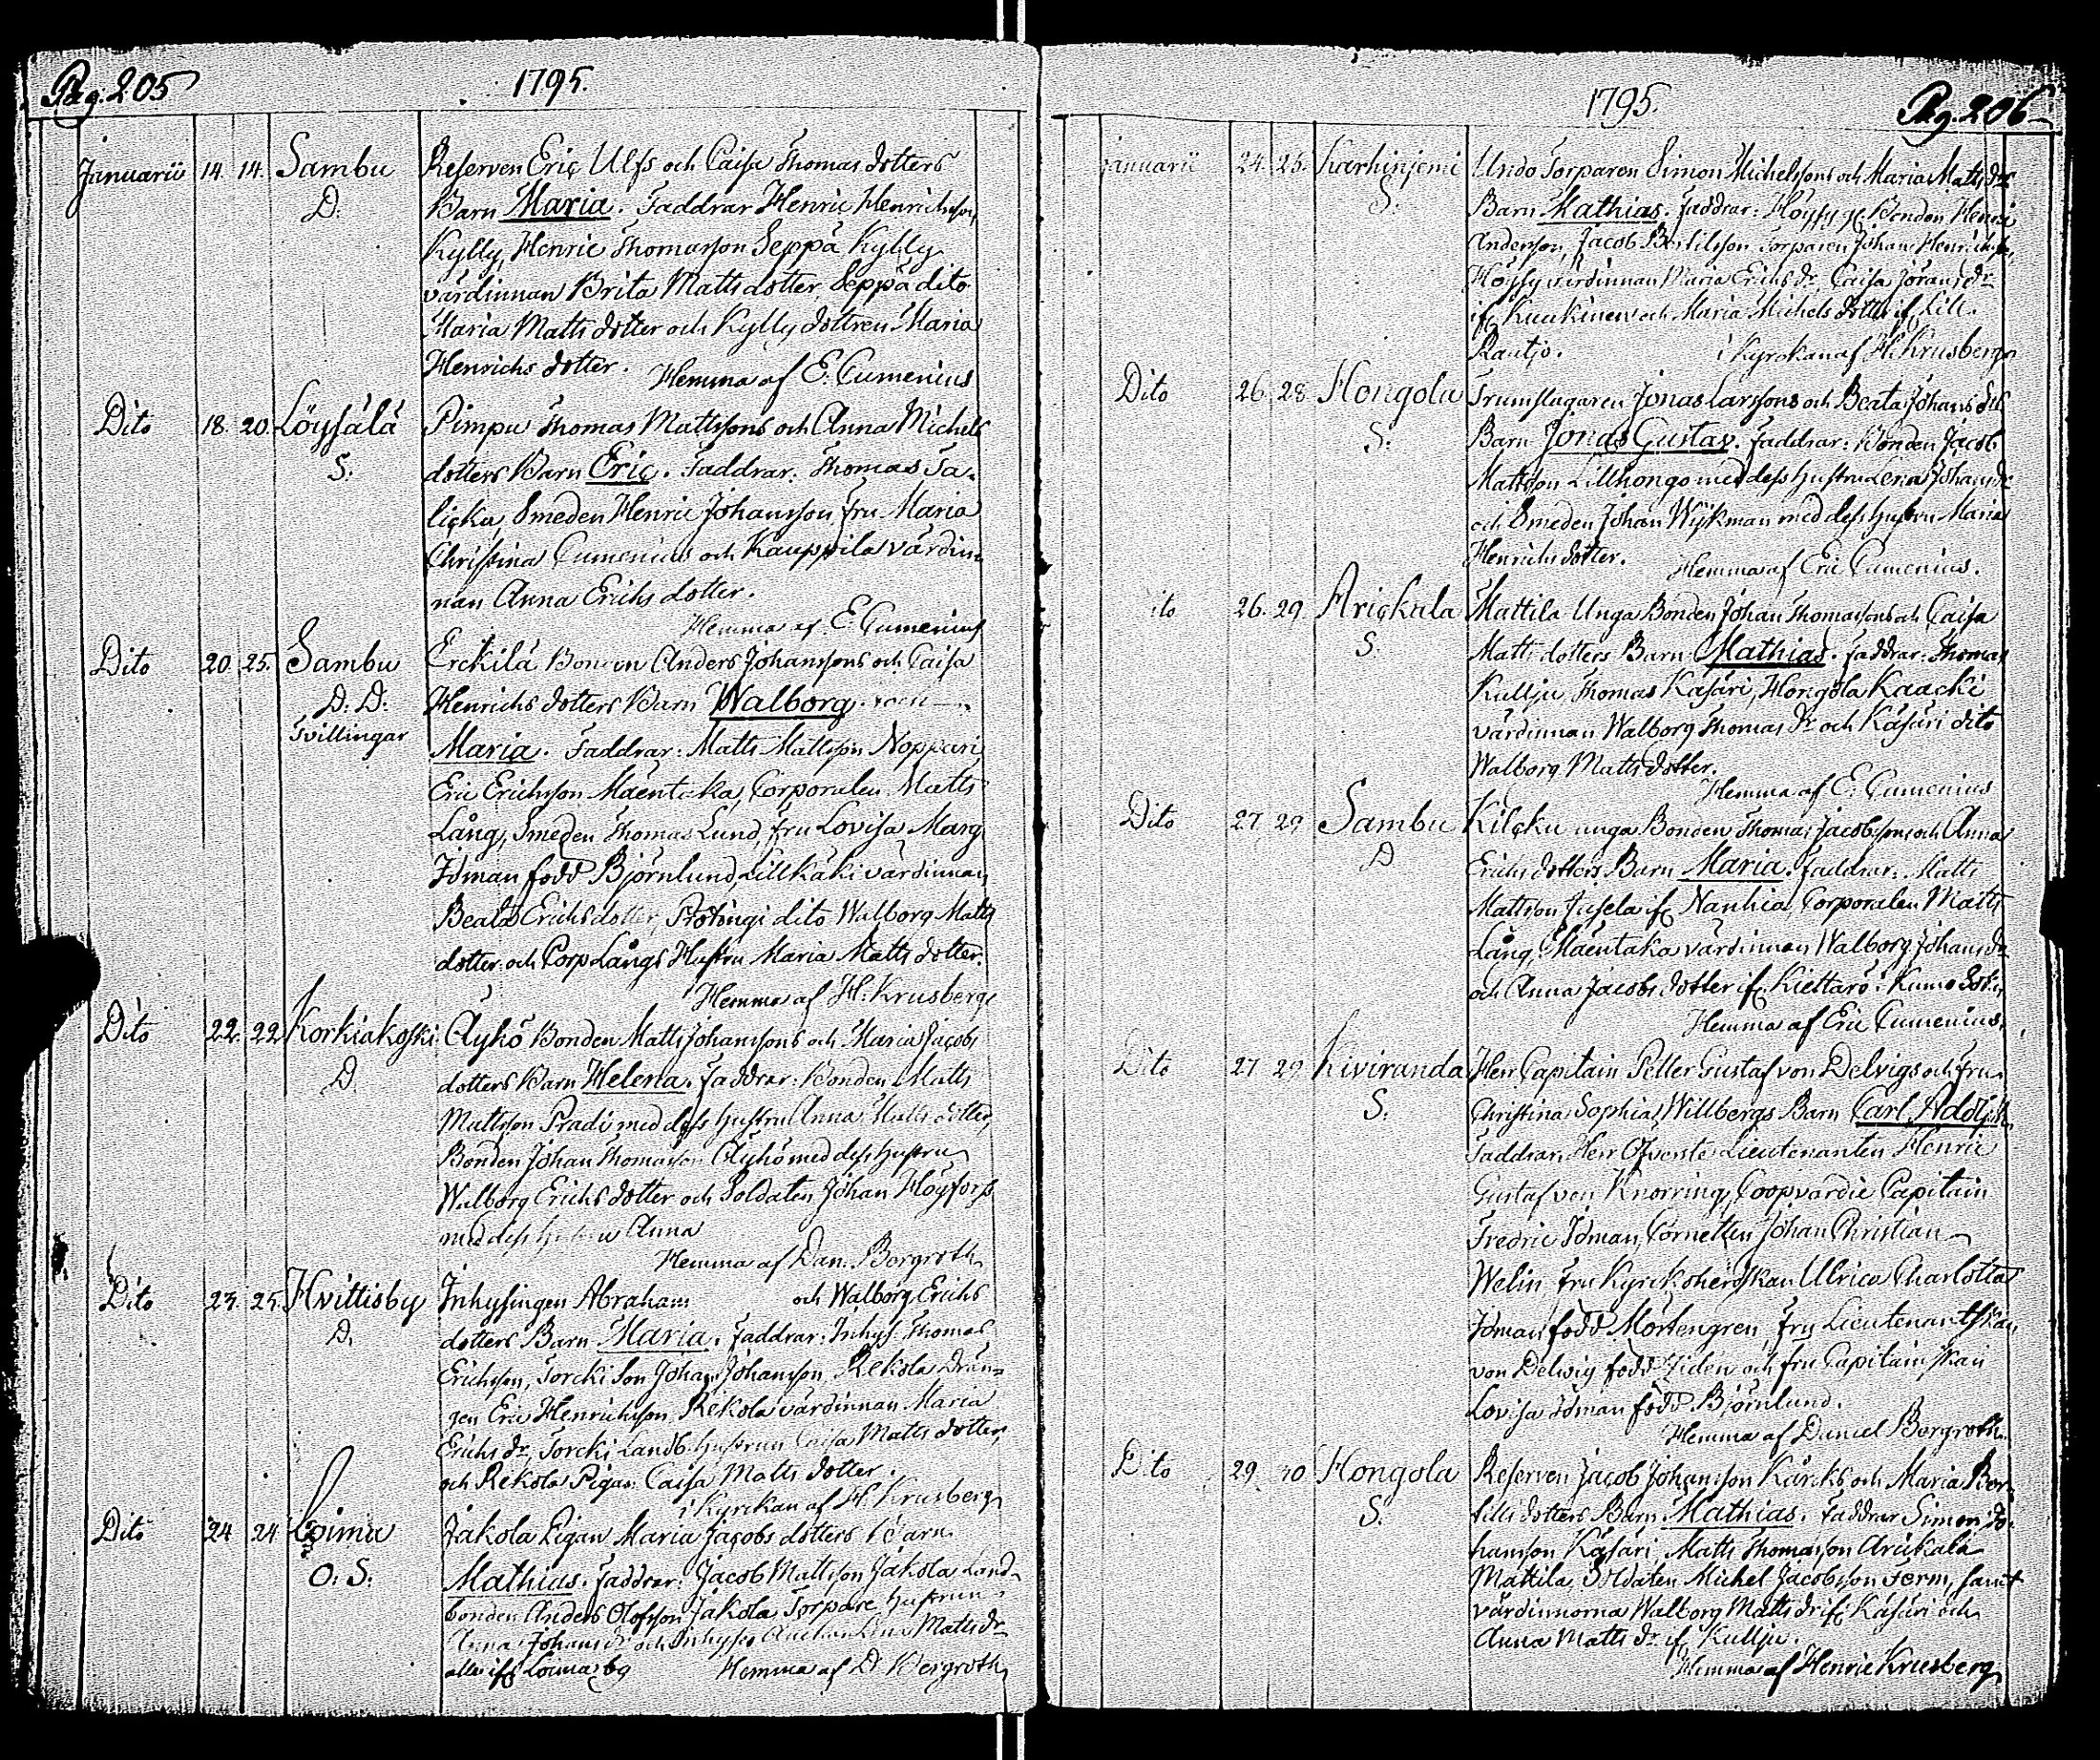 Pag. 205
1795.
Januarii 14. 14. Sambu Reserven Eric Ulfs och Caisa Thomas dotters
D. Barn Maria. Faddrar Henric Henrichsson
Kylly, Henric Thomasson Seppä Kylly
värdinnan Brita Matts dotter, Seppä dito
Maria Matts dotter och Kylly dottren Maria
Henrichs dotter. Hemma af E. Cumenius
Dito 18. 20. Löysälä Pimpu Thomas Mattssons och Anna Michels
S. dotters Barn Eric. Faddrar: Thomas Ta-
licka, Smeden Henric Johansson, fru Maria
Christina Cumenius och Kauppila värdin-
nan Anna Erichs dotter.
Hemma af E. Cumenius
Dito 20. 25. Sambu Erckilä Bonden Anders Johanssons och Caisa
D. D. Henrichs dotters Barn Walborg och
Tvillingar
Maria. Faddrar: Matts Mattsson Noppari
Eric Erichsson Mäentaka, Corporalen Matts
Lång, Smeden Thomas Lund, fru Lovisa Marg
Idman född Björnlund, Lillkäki värdinnan
Beata Erichs dotter, dito Walborg Matts
dotter och Corp Långs Hustru Maria Matts dotter.
Hemma af H. Krusberg
Dito 22. 22 Korkiakoski Äyhö Bonden Matts Johanssons och Maria Jacobs
D. dotters Barn Helena. Faddrar: Bonden Matts
Mattsson Pradi med dess hustru Anna Matts dotter,
Bonden Johan Thomasson Äyhö med dess hustru
Walborg Erichs dotter och Soldaten Johan Höyfors
med dess hustru Anna
Hemma af Dan. Borgroth
Dito 23. 25. Hvittisby Inhysingen Abraham och Walborg Erichs
D. dotters Barn Maria. Faddrar: Inhys. Thomas
Erichsson, Torcki Son Johan Johansson, Rekola Drän-
gen Eric Henrichsson, Rekola värdinnan Maria
Erichs dr, Torcki Landb. hustrun Caisa Matts dotter,
och Rekola Pigan Caisa Matts dotter.
i Kyrckan af H. Krusberg
Dito 24 24 Loima Jakola Pigan Maria Jacobs dotters Barn
O. S. Mathias. Faddrar: Jacob Mattsson Jakola Land-
bonden Anders Olofsson Jakola Torpare hustrun
Anna Johans dr och Matts dr
alla if. Loima by Hemma af D Bergroth
1795.
Pag. 206
Januarii 24. 25. Karhiniemi Undo Torparen Simon Michelssons och Maria Matts drs
S. Barn Mathias. Faddrar: Höyssy Bonden Henric
Andersson, Jacob Bertilsson Torparen Johan Henrichss,
Höyssy värdinnan Maria Erichs dr, Caisa Jörans dr
if. Kuukinen och Maria Michels dotter if. Lill.
Rautjo. i Kyrckan af H. Krusberg
Dito 26. 28 Hongola Trumslagaren Jonas Larssons och Beata Johans drs
S. Barn Jonas Gustav. Faddrar: Bonden Jacob
Mattsson Lillhongo med dess hustru Lena Johans dr
och Smeden Johan Wykman med dess hustru Maria
Henrichs dotter. Hemma af Eric Cumenius.
Dito 26. 29. Arickala Mattila Unga Bonden Johan Thomassons och Caisa
S. Matts dotters Barn Mathias. Faddrar: Thomas
Kullju, Thomas Käsäri, Hongola Kaacki
värdinnan Walborg Thomas dr och Käsäri dito
Walborg Matts dotter.
Hemma af E. Cumenius
Dito 27 29 Sambu Kilcku unga Bonden Thomas Jacobssons och Anna
D Erichs dotters Barn Maria. Faddrar: Matts
Mattsson Jusela if. Nanhia, Corporalen Matts
Lång, Mäentaka värdinnan Walborg Johans dr
och Anna Jacobs dotter if. Kiettarö i Kumo
Hemma af Eric Cumenius.
Dito 27 29 Kiviranda Herr Capitain Petter Gustaf von Delvigs och fru
S. Christina Sophia Willbergs Barn Carl Adolph
Faddrar: Herr Öfverste Lieutenanten Henric
Gustaf von Knorring, Coopvardie Capitain
Fredric Idman, Cornetten Johan Christian
Welin, fru Kyrckoherdskan Ulrica Charlotta
Idman född Mörtengren, fru Lieutenantskan
von Delwig född och fru Capitainskan
Lovisa Idman född Björnlund.
Hemma af Daniel Borgroth.
Dito 29. 30 Hongola Reserven Jacob Johansson Kärcks och Maria Ber-
S. tills dotters Barn Mathias. Faddrar Simon Jo-
hansson Käsäri, Matts Thomasson Arickala
Mattila, Soldaten Michel Jacobsson Ferm, samt
värdinnorna Walborg Matts dr if. Käsäri och
Anna Matts dr if. Kullju.
Hemma af Henric Krusberg